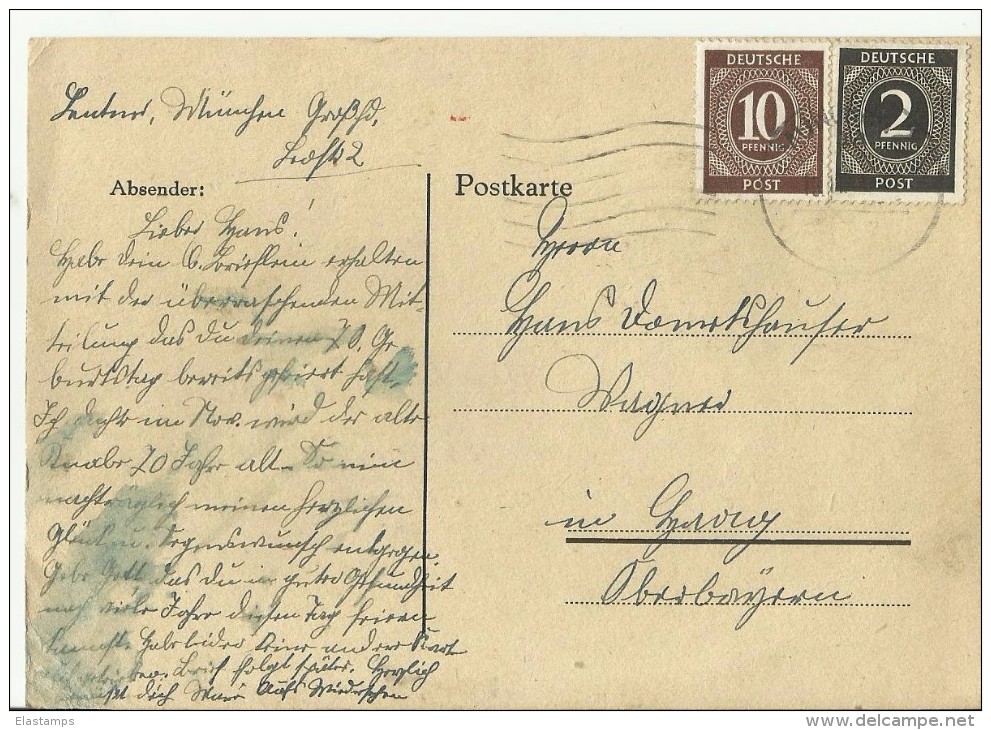 DEUTSCHE
10
PFENNIG
POST
DEUTSCHE
2
PFENNIG
POST
München
Absender:
Postkarte
Lieber Hans!
Habe dein l. Brieflein erhalten
mit der überraschenden Mit-
teilung das du deinen 70. Ge
burtstag bereits gefeiert hast.
Ich dachte im Nov. wird der alte
Knabe 70 Jahre alt. So nim
nachträglich meinen herzlichen
Glück u. Segenswunsch entgegen.
Gebe Gott, das du in guter Gesundheit
noch viele Jahre diesen Tag feiern
kannst. Habe leider keine andere Karte
Brief folgt später. Herzlich
dich Aufs Wiedersehen
Herrn
Hans
Wagner
in Haag
Oberbayern
Elastamps
www.delcampe.net